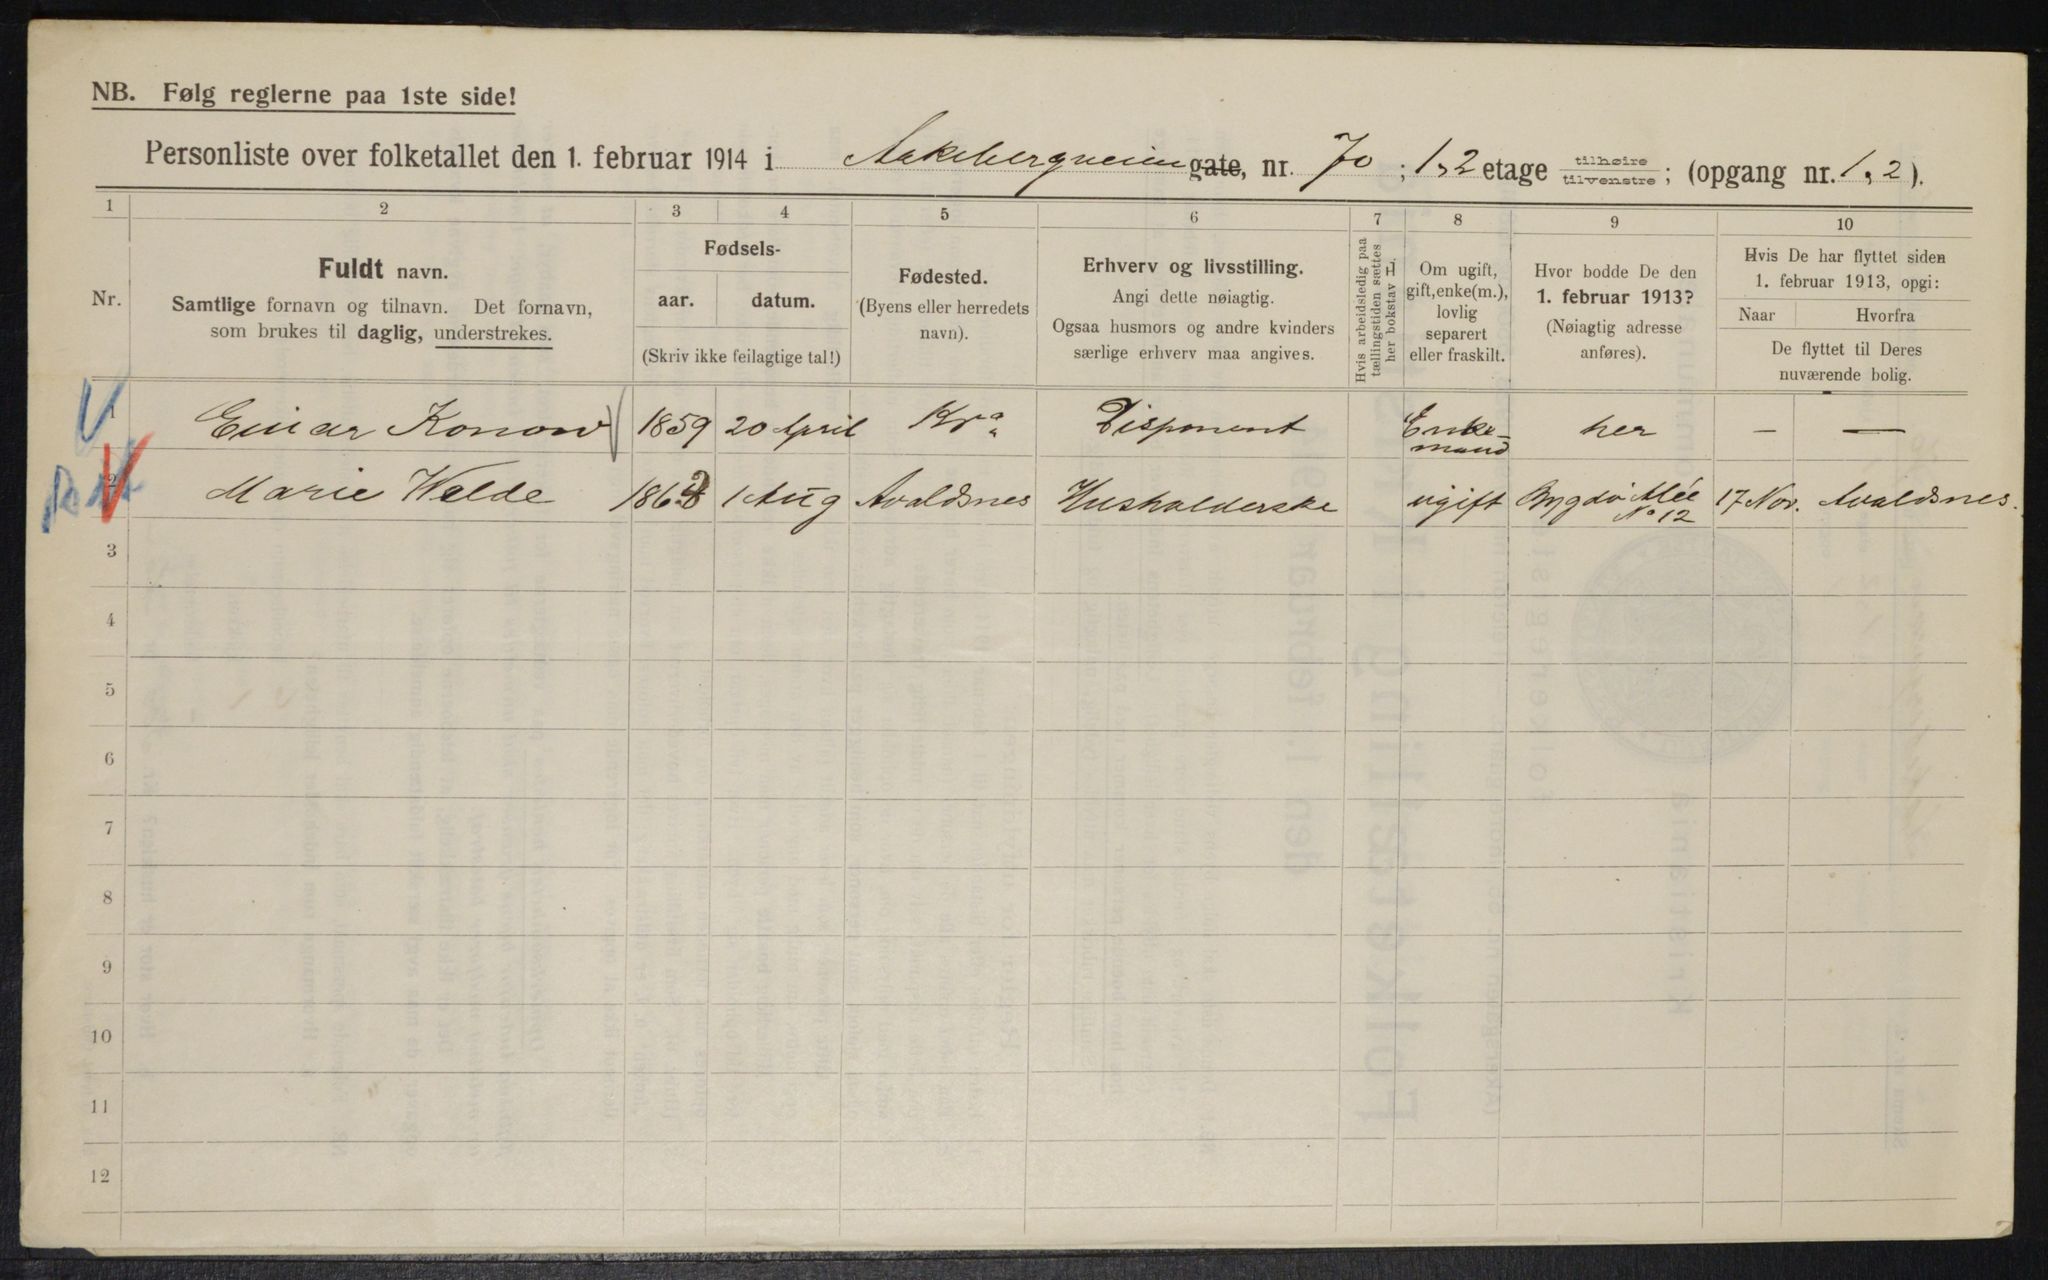 NB. Følg reglerne paa 1ste side!
Personliste over folketallet den 1. februar 1914 i Aakebergveien gate, nr. 70 ; 1,2 etage tilhøire tilvenstre ; (opgang nr. 1,2 ).
1 2 3 4 5 6 7 8 9 10
Nr.
Fuldt navn.
Samtlige fornavn og tilnavn. Det fornavn,
som brukes til daglig, understrekes.
Fødsels-
aar. datum.
(Skriv ikke feilagtige tal!)
Fødested.
(Byens eller herredets
navn).
Erhverv og livsstilling.
Angi dette nøiagtig.
Ogsaa husmors og andre kvinders
særlige erhverv maa angives.
Hvis arbeidsledig paa
tællingstiden sættes
her bokstav L.
Om ugift,
gift, enke(m.),
lovlig
separert
eller fraskilt.
Hvor bodde De den
1. februar 1913?
(Nøiagtig adresse
anføres).
Hvis De har flyttet siden
1. februar 1913, opgi:
Naar Hvorfra
De flyttet til Deres
nuværende bolig.
1 Einar Konow 1859 20 April Kra Disponent Enke-
mand her — —
2 Marie Velde 1862 1 Aug Avaldsnes Husholderske ugift Bygdø Allé
No 12 17 Nov. Avaldsnes.
3
4
5
6
7
8
9
10
11
12